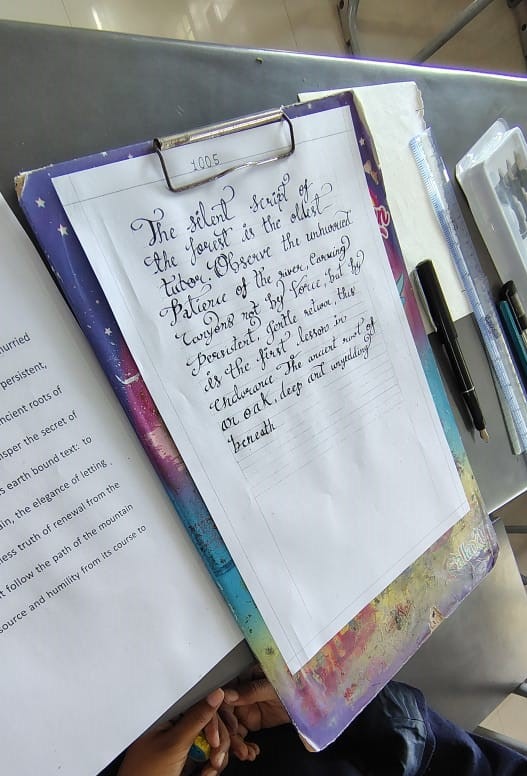 1005
The silent script of
the forest is the oldest
tutor. Observe the unhurried
Patience of the river, carving
Canyons not by Force, but by
Persistent, gentle return, this
is the first lesson in
endurance. The ancient root of
an oak, deep and unyielding
beneath
hurried
persistent,
ncient roots of
nsper the secret of
s earth bound text: to
in, the elegance of letting
less truth of renewal from the
t follow the path of the mountain
source and humility from its course to